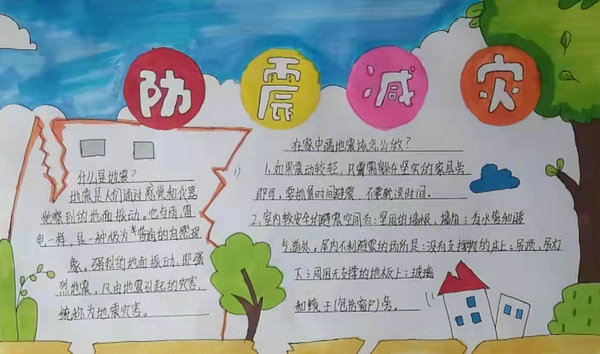 防震减灾
什么是地震?
地震是人们通过感觉和仪器
觉察到的地面振动。它与雨、雷
电一样,是一种极为普通的自然现
象。强烈的地面振动,即强
烈地震,凡由地震引起的灾害,
统称为地震灾害。
在家中遇地震该怎么做?
1.如果震动较轻,只需躲在坚实的家具旁
即可,要抓紧时间避震,不要耽误时间。
2.室内较安全的避震空间有:坚固的墙根、墙角;有水管和暖
气道处。屋内不利避震的场所是:没有支撑物的床上;吊顶、吊灯
下;周围无支撑的地板上;玻璃
和镜子(包括窗户)旁。